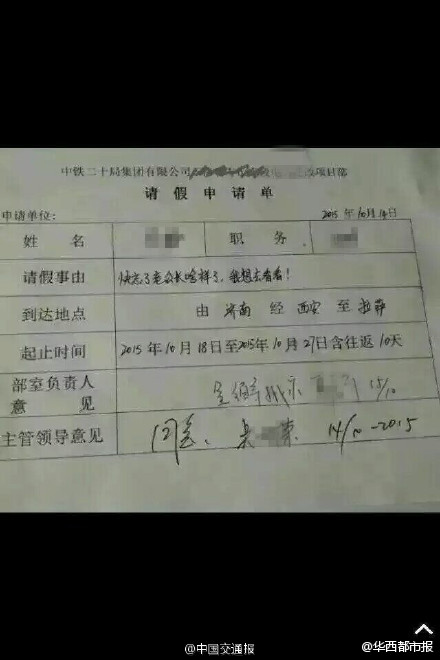 中铁二十局集团有限公司 改项目部
请假申请单
申请单位: 2015年10月14日
姓名 职务
请假事由 快忘了老公长啥样了,我想去看看!
到达地点 由 济南 经 西安 至 拉萨
起止时间 2015年10月18日至2015年10月27日含往返10天
部室负责人
意见 15/10
主管领导意见 同意、 14/10-2015
@中国交通报
@华西都市报